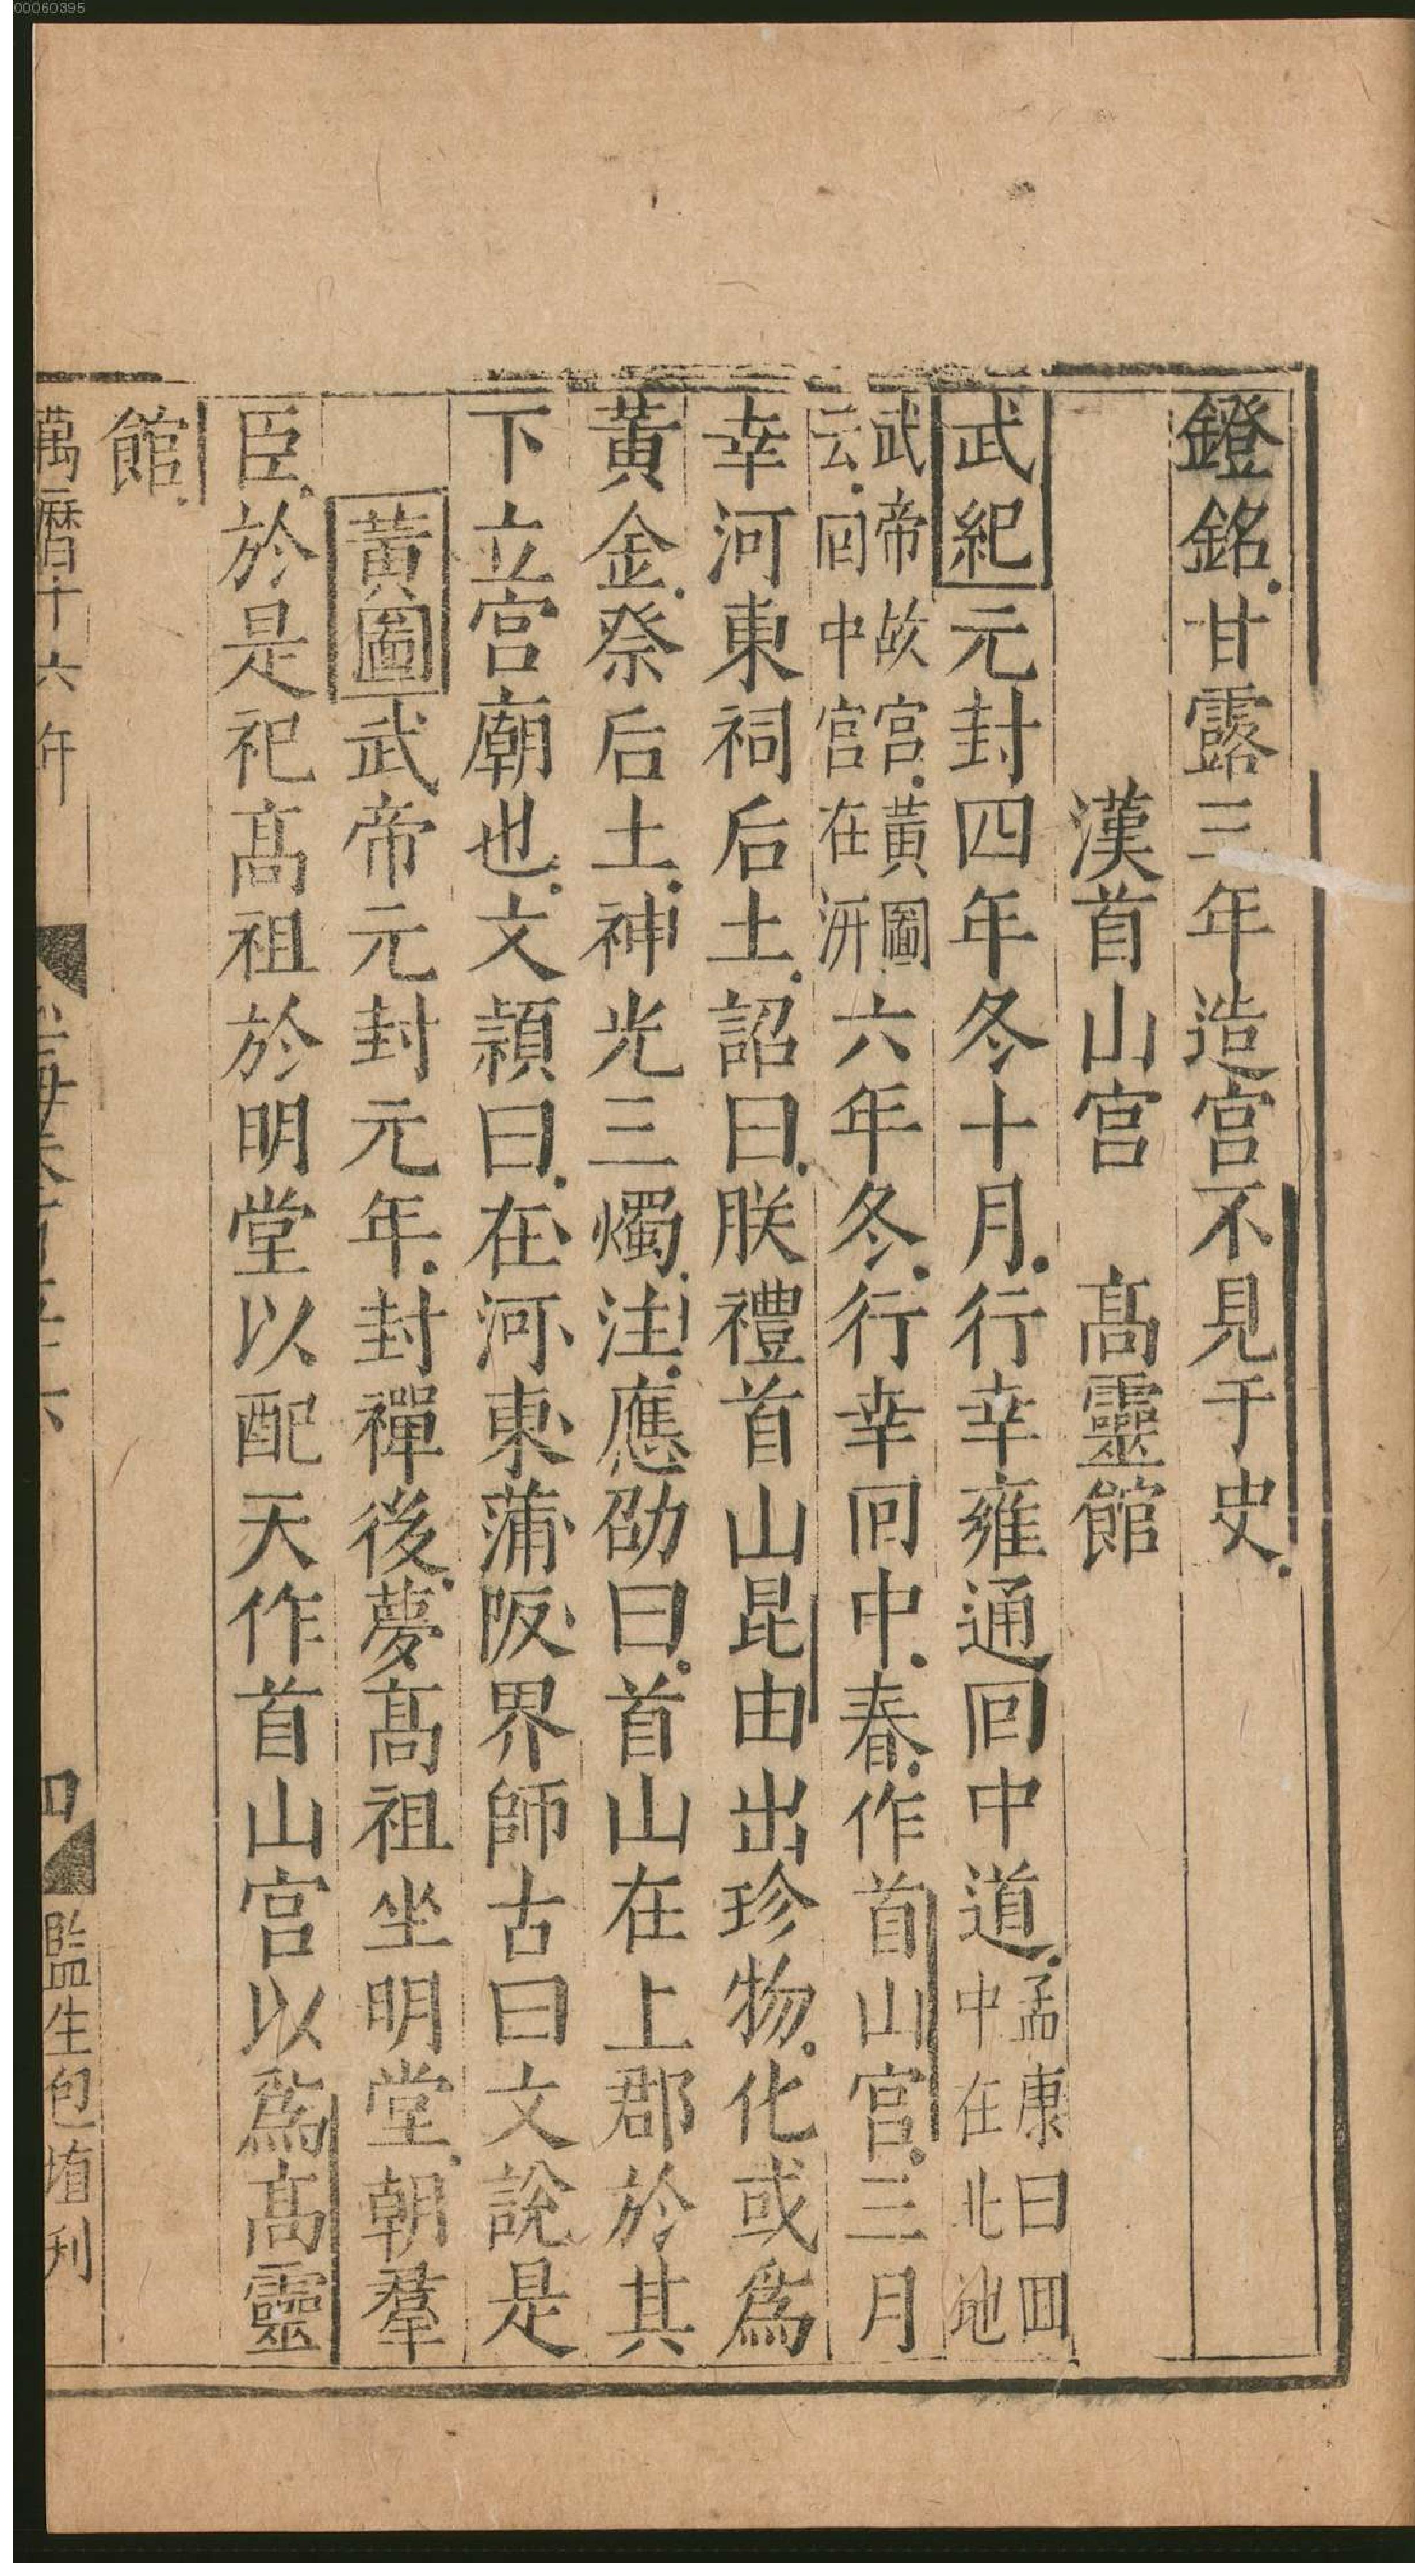 00060395
鐙銘甘露三年造宮不見于史
漢首山宮　髙靈館
武紀元封四年冬十月行幸雍通回中道孟康曰回中在北地
武帝故宮黃圖云回中宮在汧六年冬行幸回中春作首山宮三月
幸河東祠后土詔曰朕禮首山昆田出珍物化或爲
黃金祭后土神光三燭注應劭曰首山在上郡於其
下立宮廟也文頴曰在河東蒲阪界師古曰文說是
黃圖武帝元封元年封禪後夢髙祖坐明堂朝羣
臣於是祀髙祖於明堂以配天作首山宮以爲髙靈
館
萬曆十六年　四　監生包堉刋